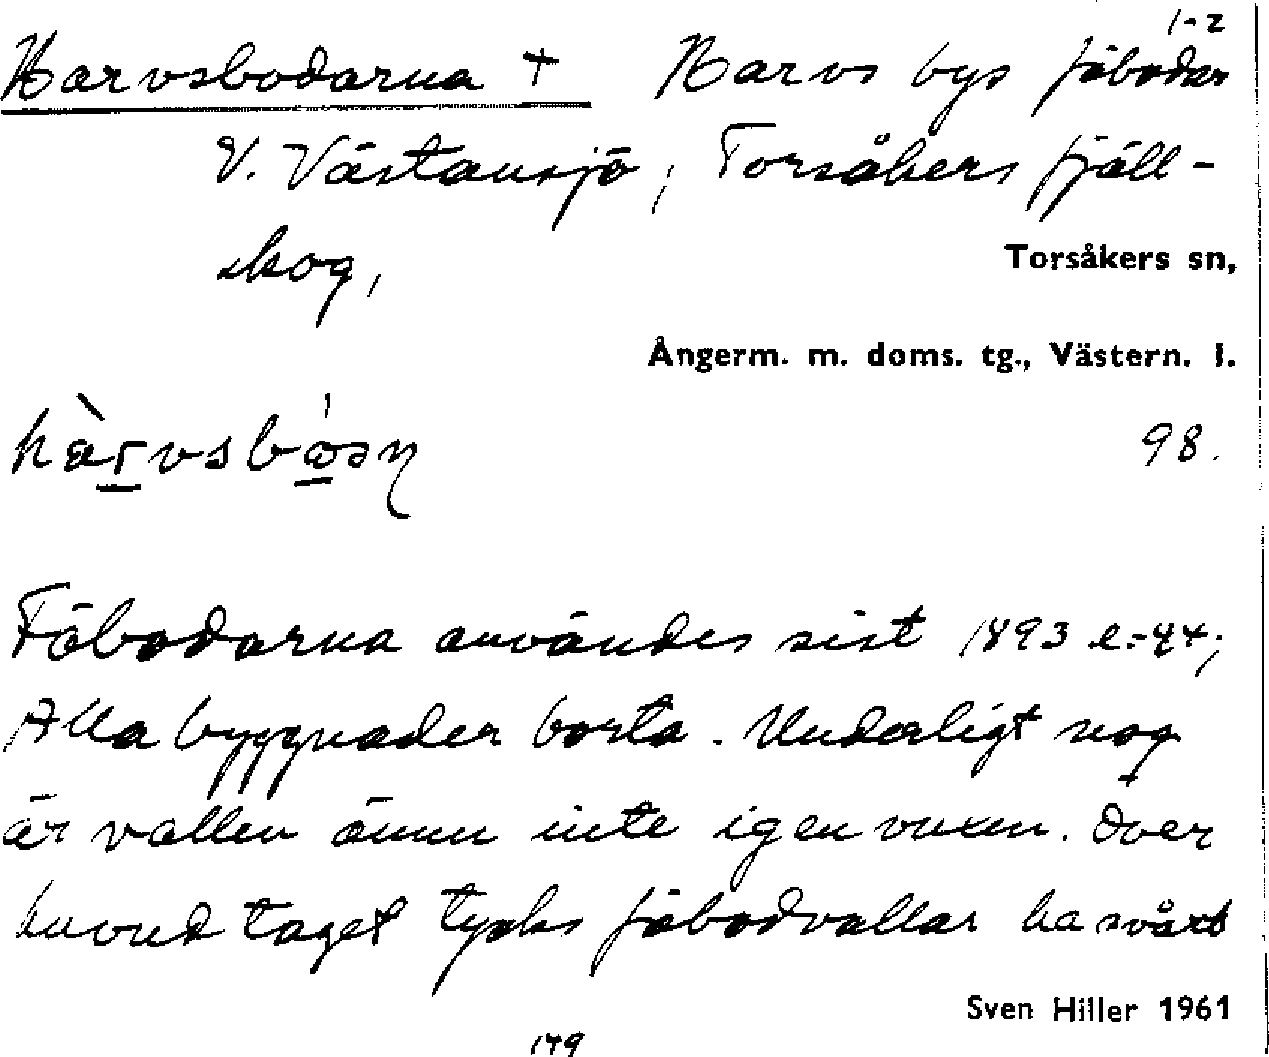 1-2
Harvsbodarna + Harvs bys fäbodar
V. Västansjö, Torsåkers fjäll-
skog,
Torsåkers sn,
Ångerm. m. doms. tg., Västern. l.
98.
Fäbodarna användes sist 1893 l.-94;
Alla byggnader borta. Underligt nog
är vallen ännu inte igenvuxen. Över
huvud taget tycks fäbodvallar ha svårt
Sven Hiller 1961
149